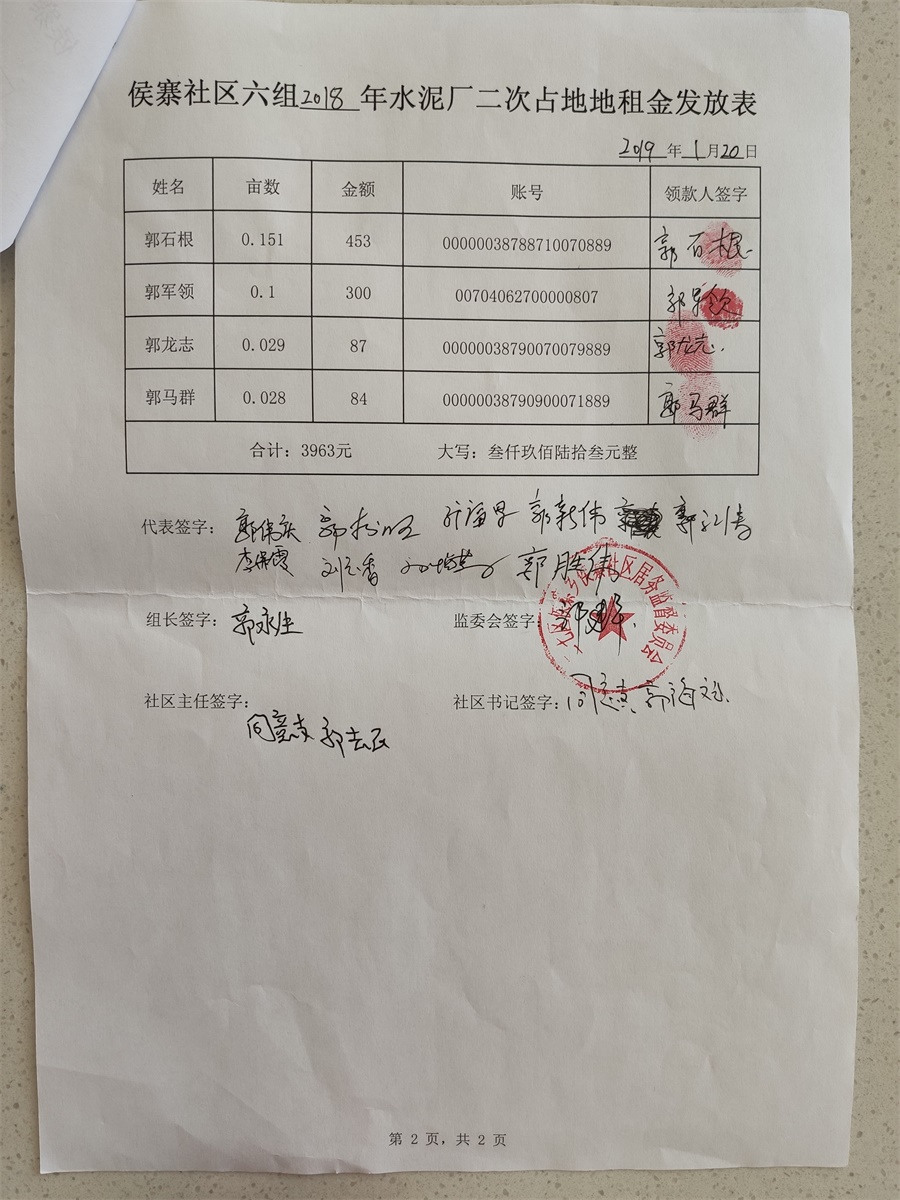 侯寨社区六组2018年水泥厂二次占地地租金发放表
2019年1月20日
姓名 亩数 金额 账号 领款人签字
郭石根 0.151 453 00000038788710070889 郭石根
郭军领 0.1 300 00704062700000807 郭军领
郭龙志 0.029 87 00000038790070079889 郭龙志
郭马群 0.028 84 00000038790900071889 郭马群
合计：3963元 大写：叁仟玖佰陆拾叁元整
代表签字：郭伟庆 郭新伟
刘 香 郭胜伟
组长签字：郭永生 监委会签字：郭
社区居务监督委员会
社区主任签字： 社区书记签字：同意 郭海
同意 郭
第 2 页，共 2 页